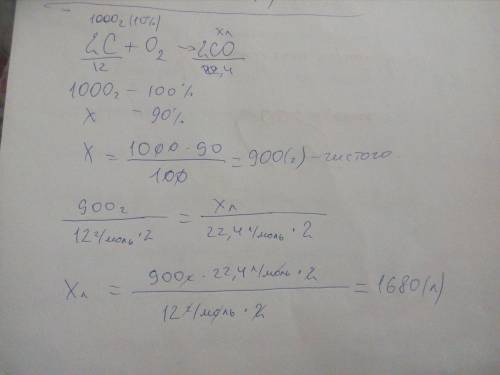 1000г (10%)
xл
2C + O₂ → 2CO
12 22,4
1000г – 100%
x – 90%
x = 1000 · 90 / 100 = 900(г) – чистого
900г / 12г/моль · 2 = xл / 22,4л/моль · 2
xл = 900г · 22,4л/моль · 2 / 12г/моль · 2 = 1680(л)